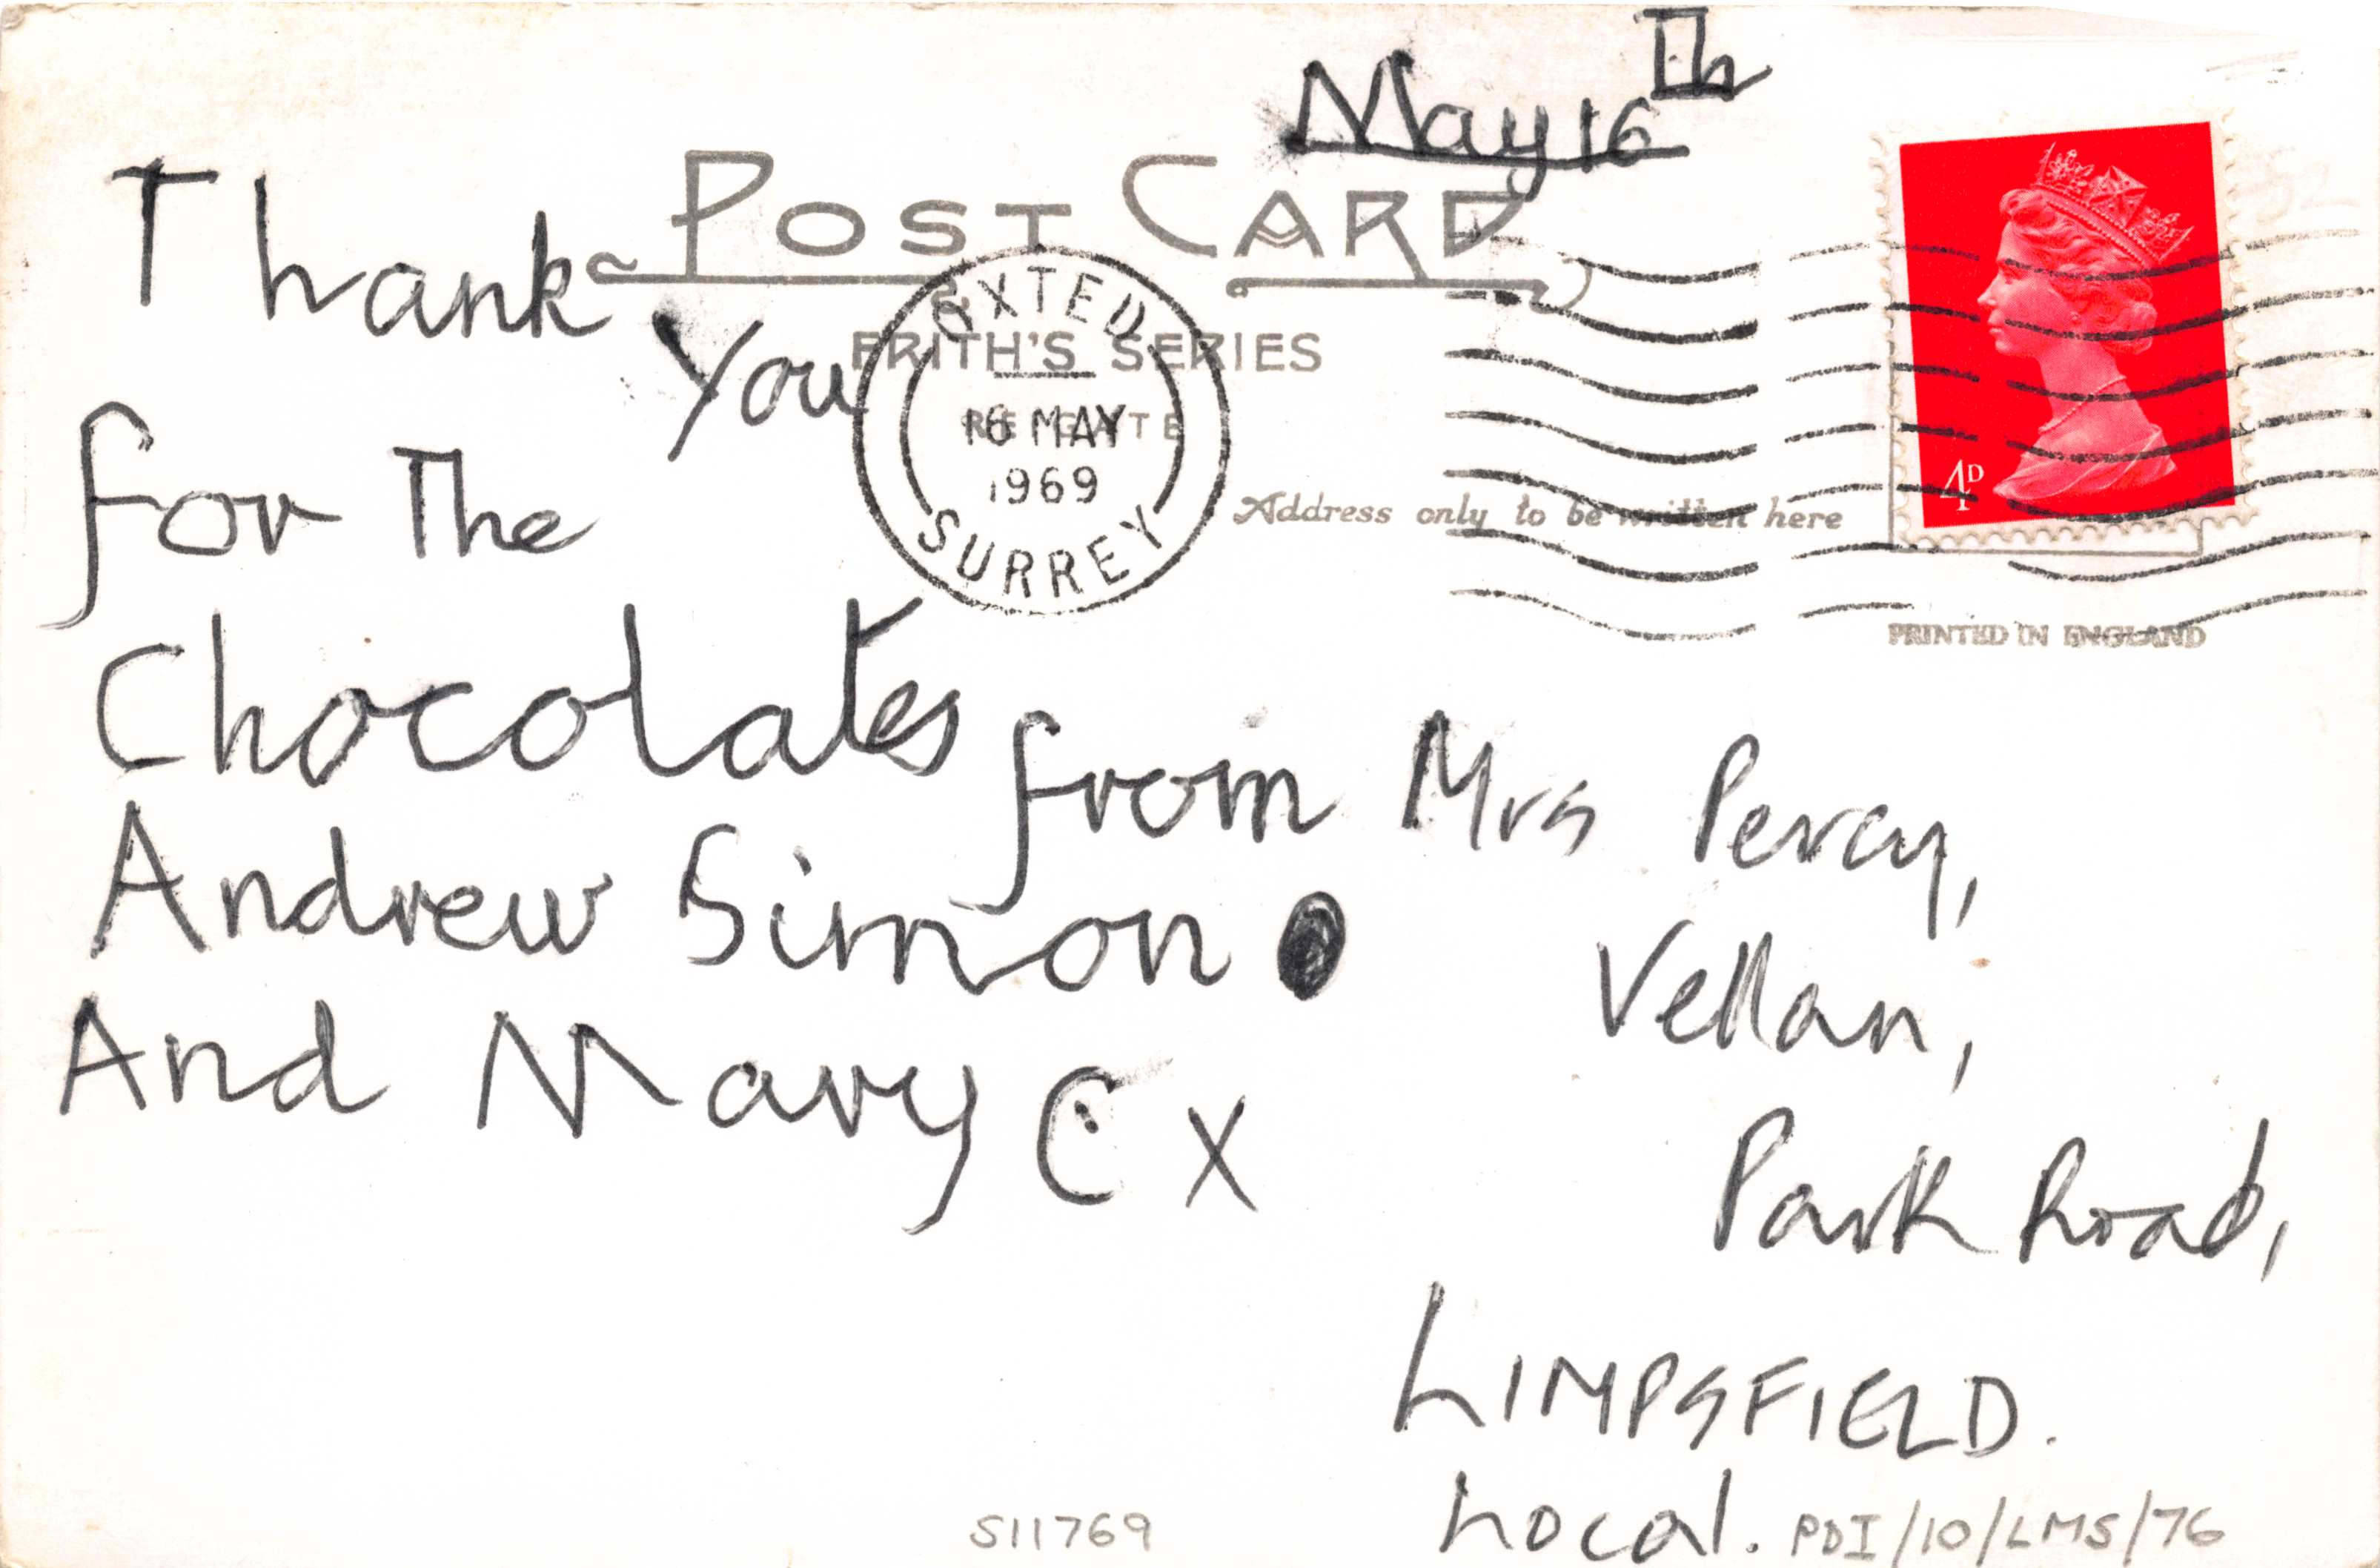 May 16th
POST CARD
Thank You
FRITH'S SERIES
REIGATE
OXTED
16 MAY
1969
SURREY
4D
Address only to be written here
PRINTED IN ENGLAND
for The
Chocolates from
Andrew Simon
And Mary C X
Mrs Percy,
Vellan,
Park Road,
LIMPSFIELD.
Local.
S11769
PDI/10/LMS/76